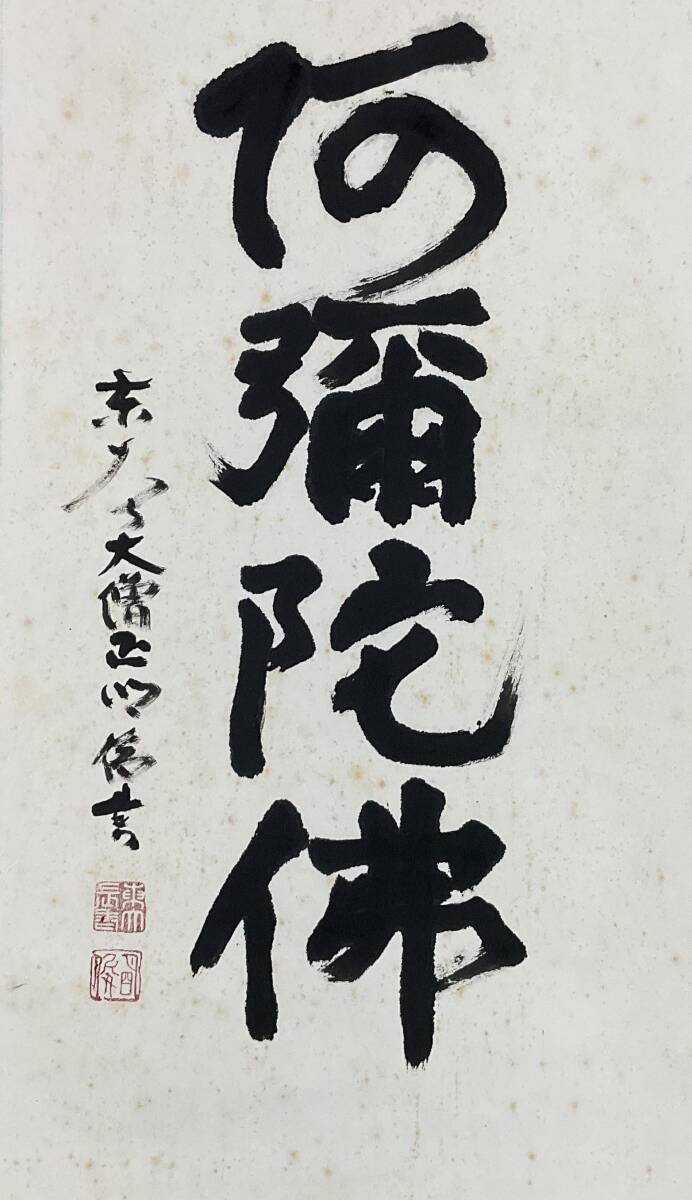 阿彌陀佛
東大寺大僧正明俊書